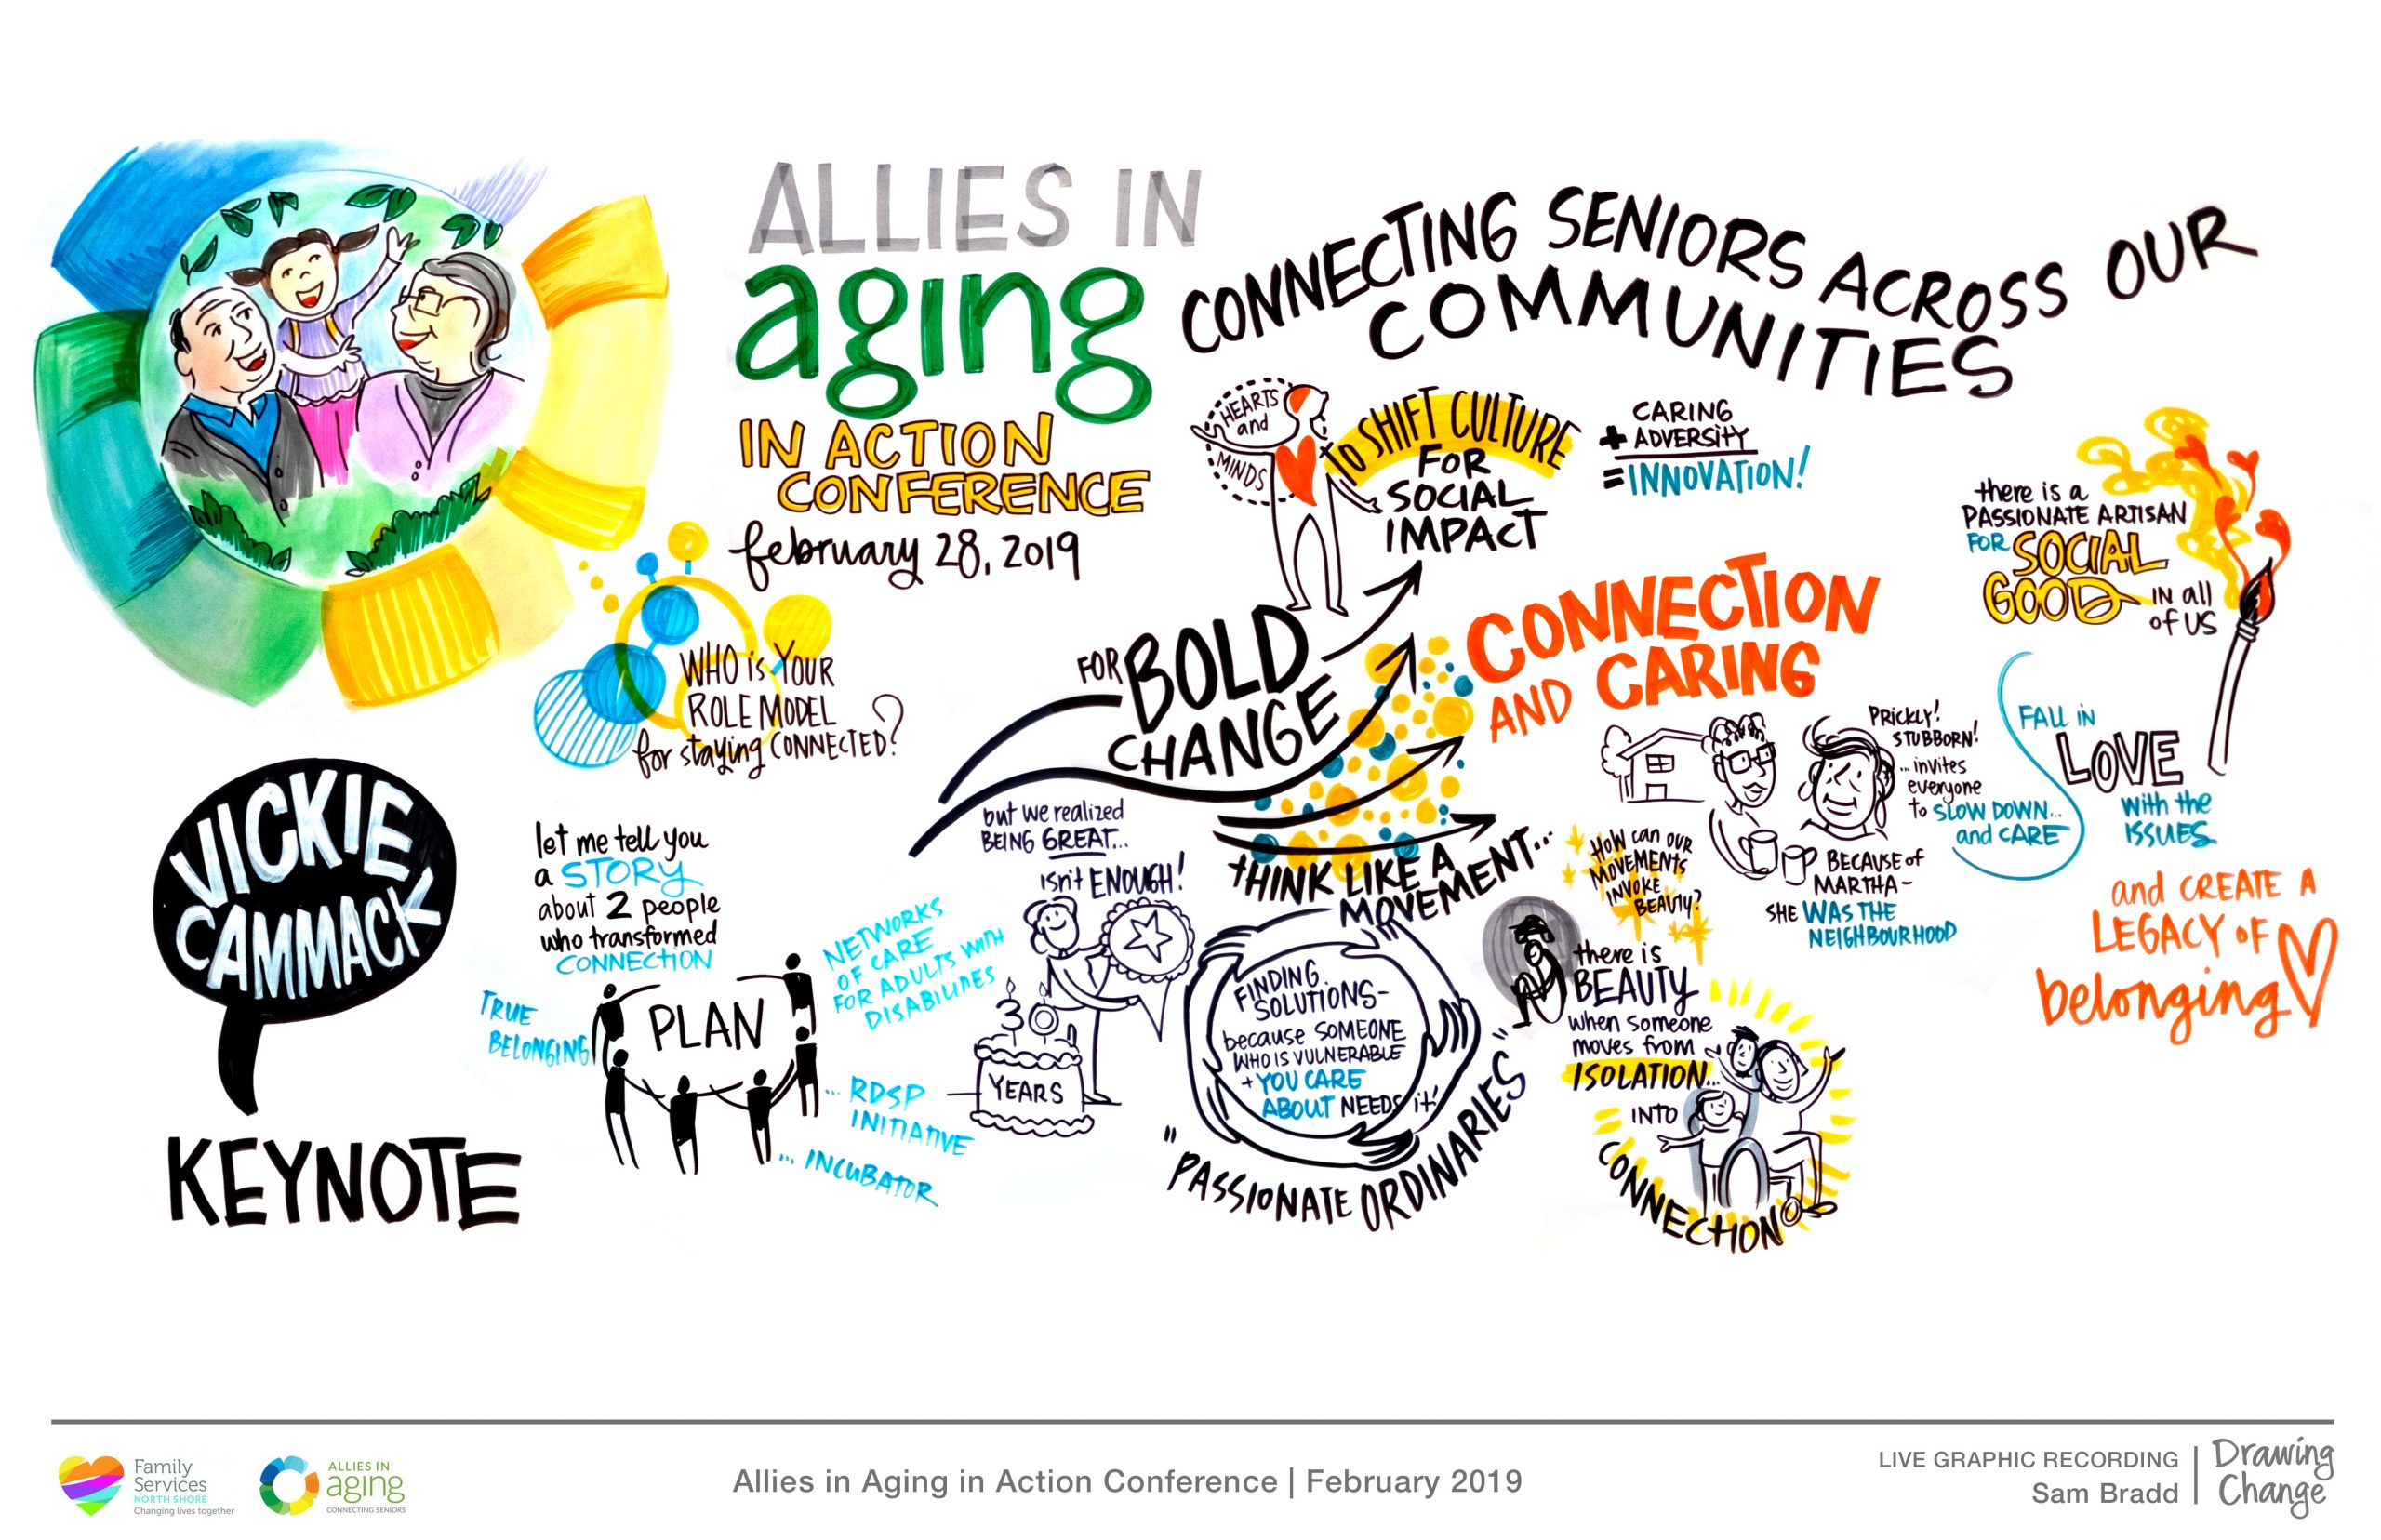 ALLIES IN
aging
IN ACTION
CONFERENCE
february 28, 2019
CONNECTING SENIORS ACROSS OUR
COMMUNITIES
WHO is YOUR
ROLE MODEL
for staying CONNECTED?
VICKIE
CAMMACK
KEYNOTE
let me tell you
a STORY
about 2 people
who transformed
CONNECTION
TRUE
BELONGING
PLAN
NETWORKS
OF CARE
FOR ADULTS WITH
DISABILITIES
... RDSP
INITIATIVE
... INCUBATOR
but we realized
BEING GREAT...
isn't ENOUGH!
30
YEARS
FOR BOLD
CHANGE
HEARTS
and
MINDS
TO SHIFT CULTURE
FOR
SOCIAL
IMPACT
CARING
+ ADVERSITY
= INNOVATION!
CONNECTION
AND CARING
tHINK LIKE A
MOVEMENT...
FINDING
SOLUTIONS-
because SOMEONE
WHO IS VULNERABLE
+ YOU CARE
ABOUT NEEDS it!
"PASSIONATE ORDINARIES"
HOW can OUR
MOVEMENTS
INVOKE
BEAUTY?
there is
BEAUTY
when someone
moves from
ISOLATION...
INTO
CONNECTION
PRICKLY!
STUBBORN!
... invites
everyone
to SLOW DOWN...
and CARE
BECAUSE of
MARTHA-
SHE WAS THE
NEIGHBOURHOOD
there is a
PASSIONATE ARTISAN
FOR SOCIAL
GOOD
IN all
of US
FALL iN
LOVE
with the
ISSUES
and CREATE A
LEGACY OF
belonging
Family
Services
NORTH SHORE
Changing lives together
ALLIES IN
aging
CONNECTING SENIORS
Allies in Aging in Action Conference | February 2019
LIVE GRAPHIC RECORDING
Sam Bradd
Drawing
Change